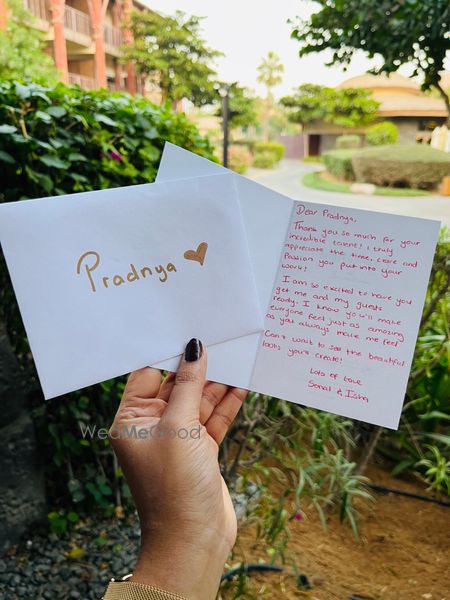 Pradnya
Dear Pradnya,
Thank you so much for your
incredible talent! I truly
appreciate the time, care and
Passion you put into your
work!
I am so excited to have you
get me and my guests
ready. I know yo'll make
everyone feel just as amazing
as you always make me feel
Can't wait to see the beautiful
looks you'll create!
Lots of love
Sonal & Isha
WedMeGood